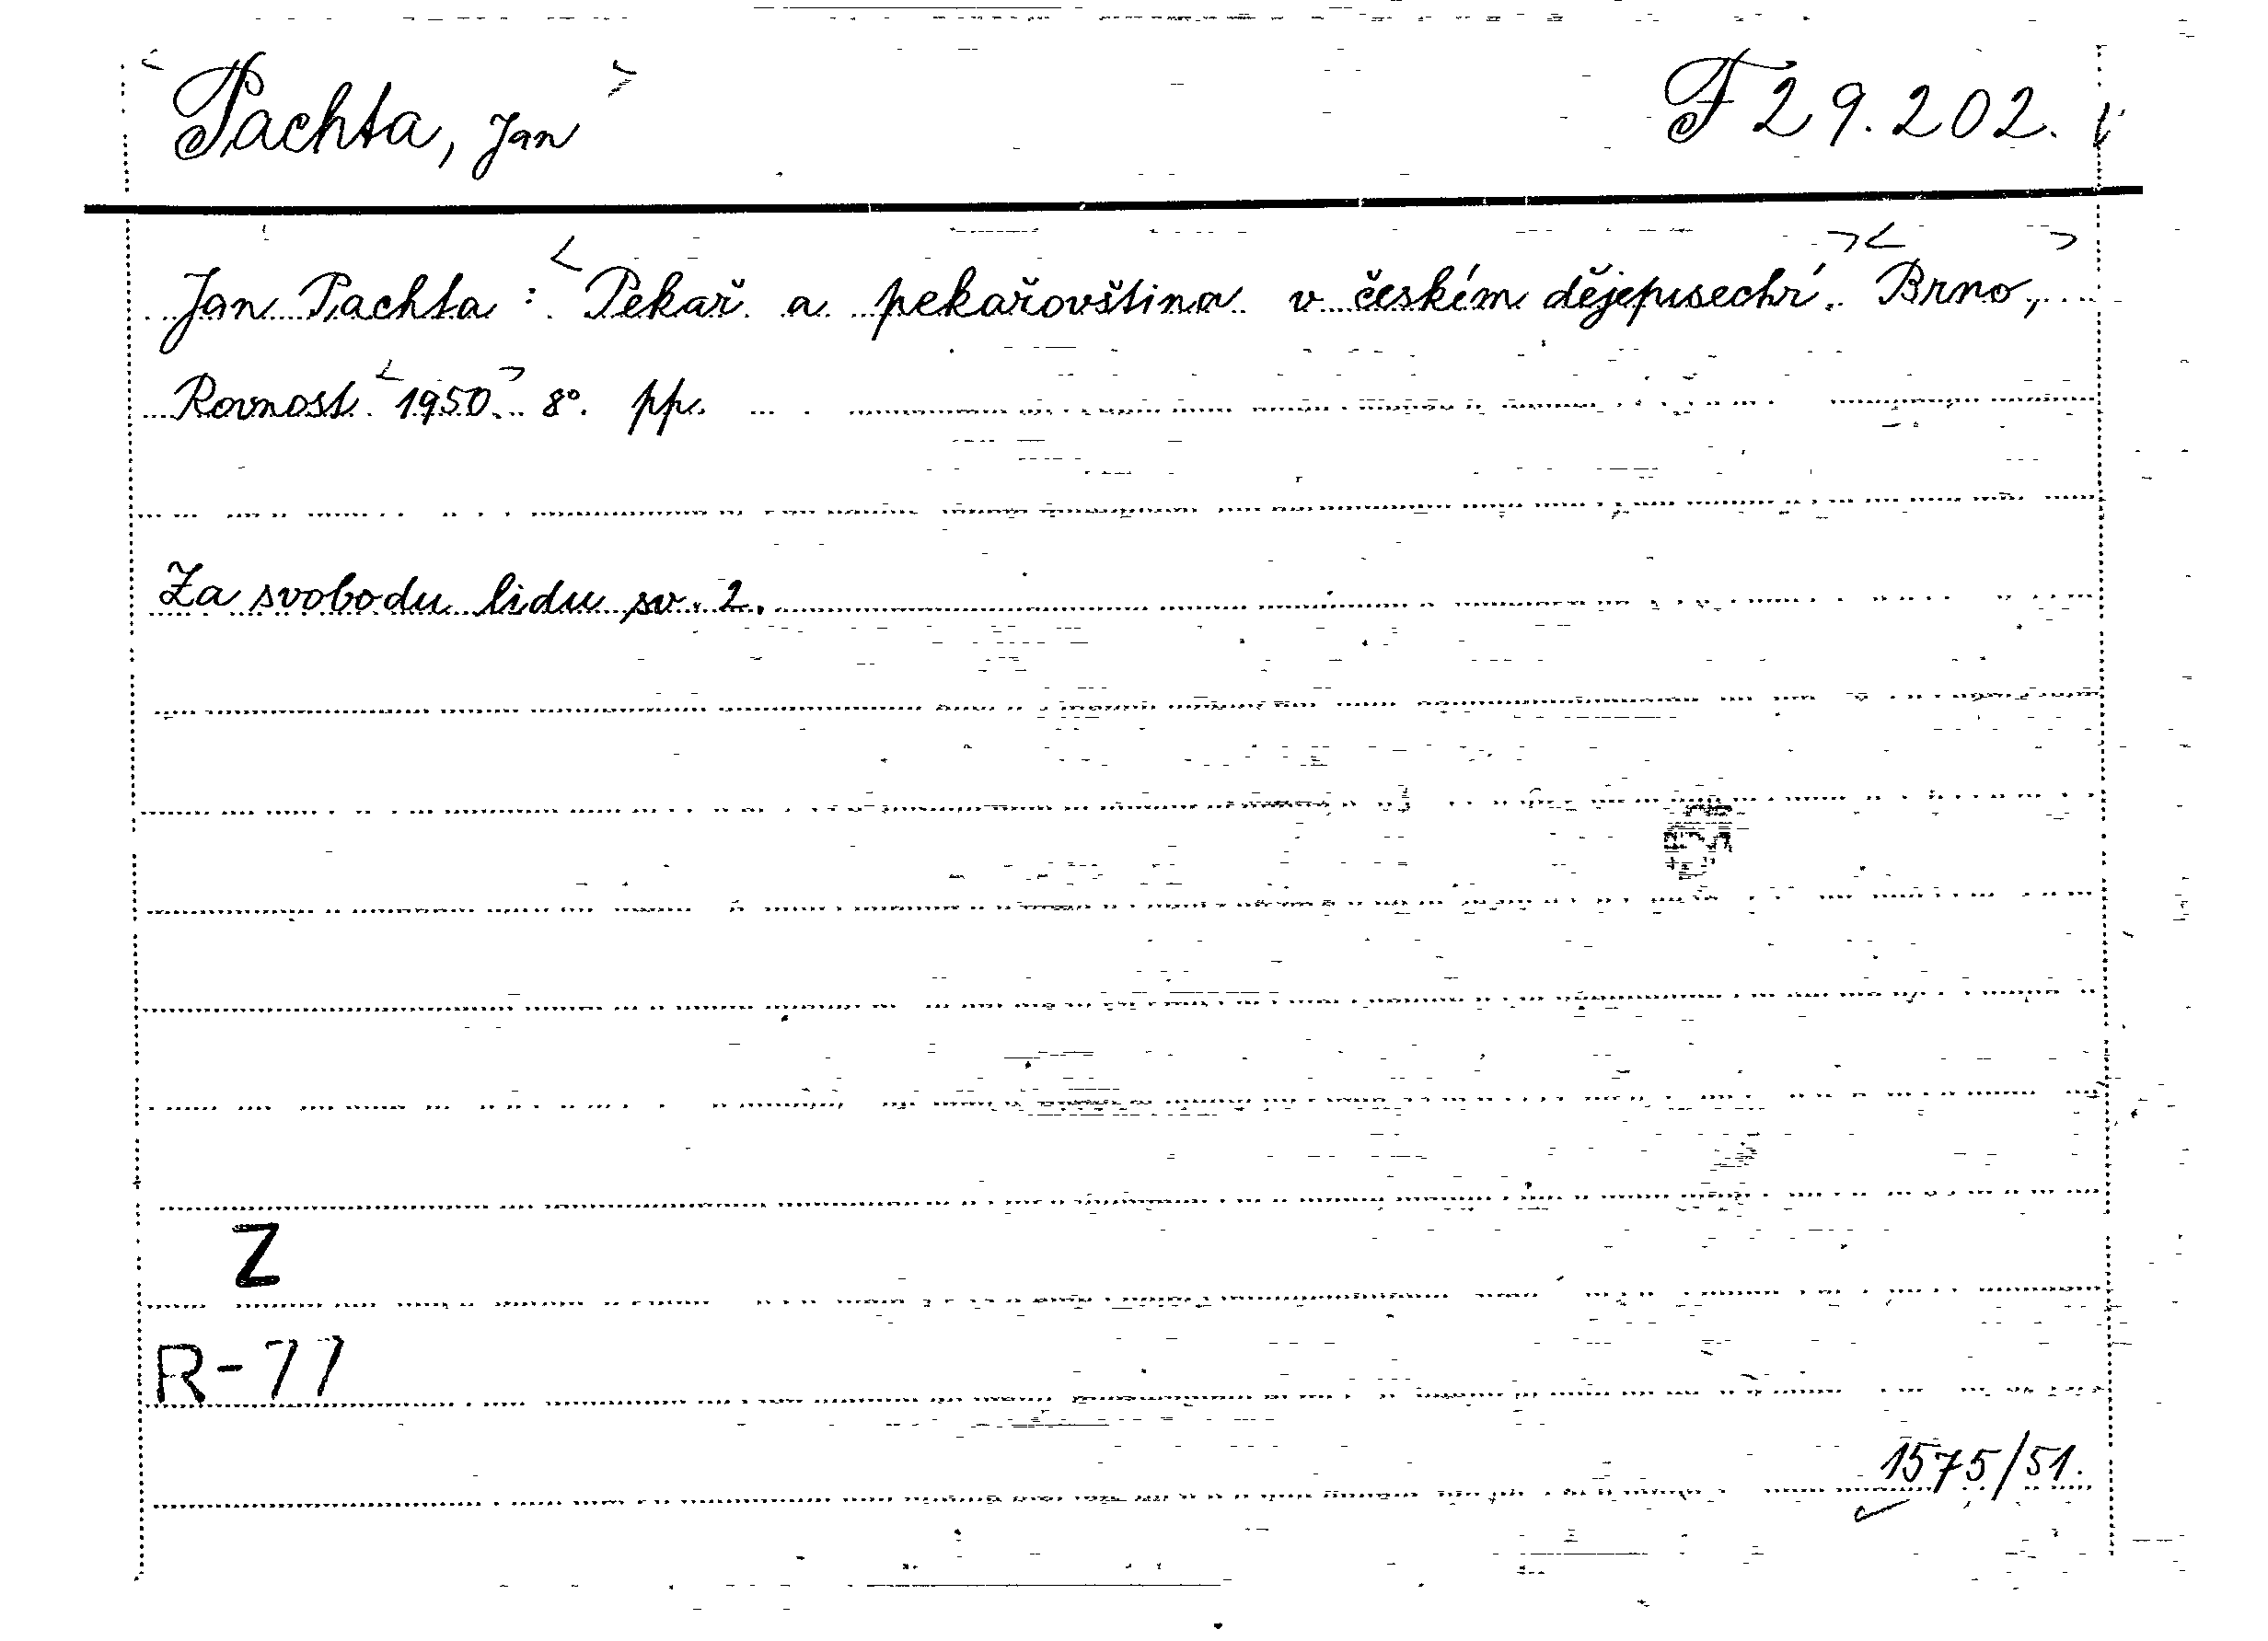 Pachta, Jan F 29.202.
Jan Pachta: Pekař a pekařovština v českém dějepisectví. Brno,
Rovnost 1950. 8°. pp.
Za svobodu lidu sv. 2.
Z
R-77
1575/51.